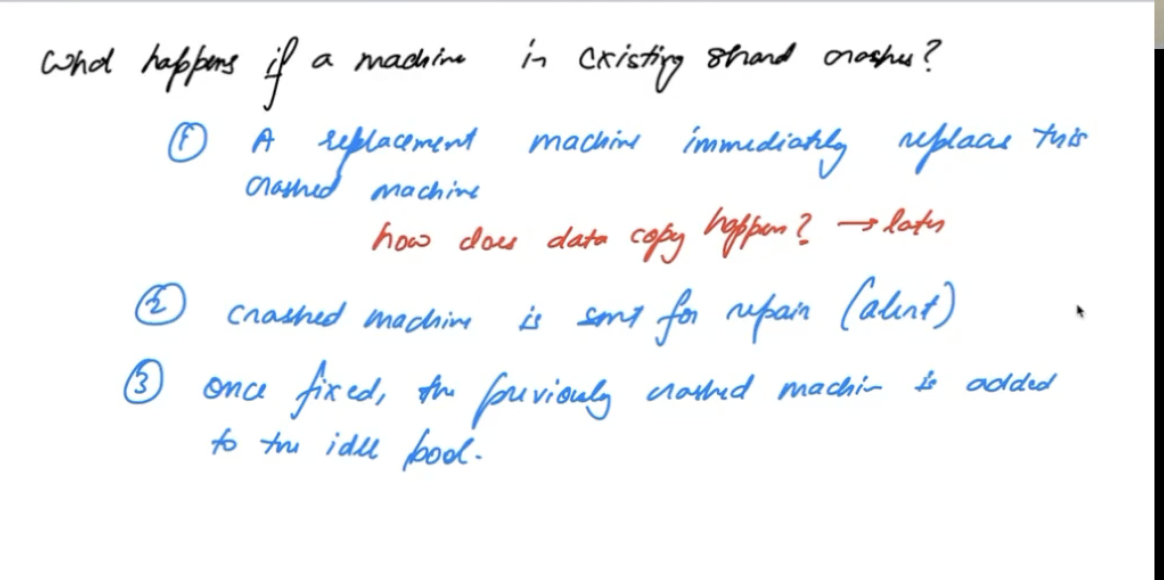 What happens if a machine in existing shard crashes?
① A replacement machine immediately replaces this
crashed machine
how does data copy happen? → later
② crashed machine is sent for repair (alert)
③ once fixed, the previously crashed machin is added
to the idle pool.